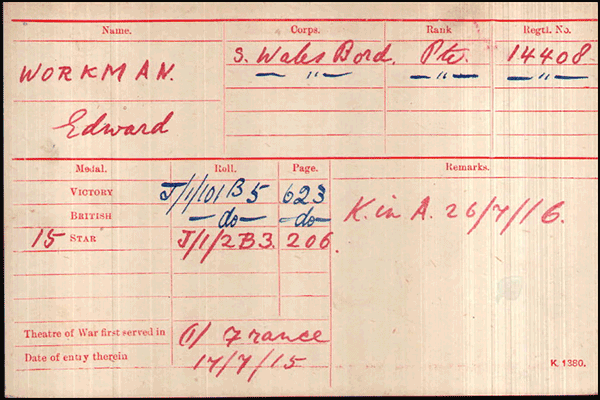 Name. Corps. Rank Regtl. No.
WORKMAN. S. Wales Bord. Pte. 14408.
— " — — " — — " —
Edward
Medal. Roll. Page. Remarks.
VICTORY J/1/101 B5 623
BRITISH — do — — do — K. in A. 26/7/16.
15 STAR J/1/2 B3. 206.
Theatre of War first served in (1) France
Date of entry therein 17/7/15
K 1380.